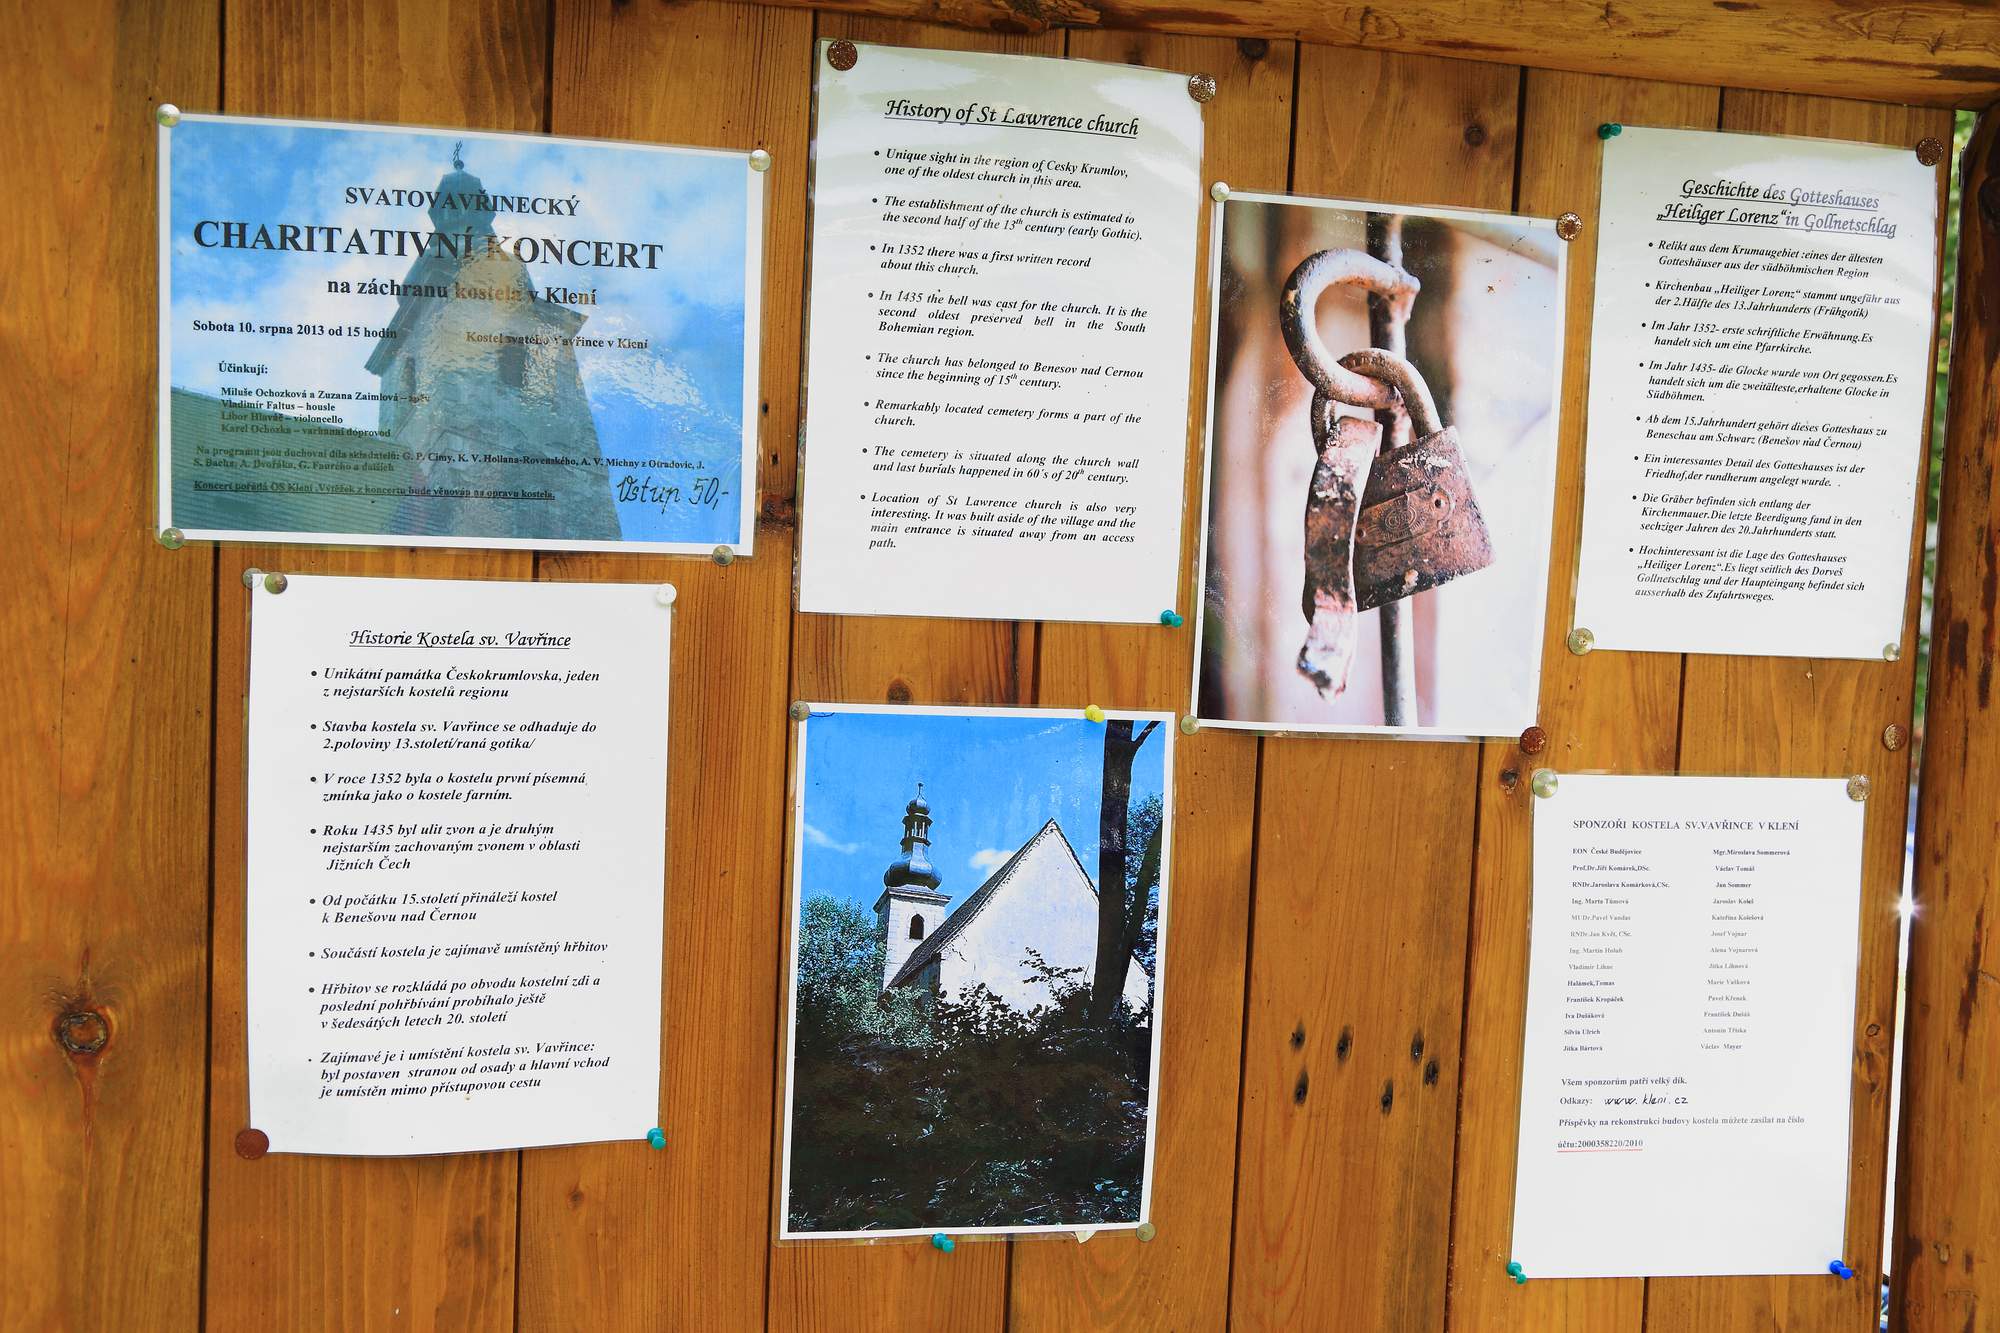 SVATOVAVŘINECKÝ
CHARITATIVNÍ KONCERT
na záchranu kostela v Klení
Sobota 10. srpna 2013 od 15 hodin
Kostel svatého Vavřince v Klení
Účinkují:
Miluše Ochozková a Zuzana Zaimlová – zpěv
Vladimír Faltus – housle
Libor Hlaváč – violoncello
Karel Ochozka – varhanní doprovod
Na programu jsou duchovní díla skladatelů: G. P. Cimy, K. V. Hollana-Rovenského, A. V. Michny z Otradovic, J.
S. Bacha, A. Dvořáka, G. Faurého a dalších
Koncert pořádá OS Klení .Výtěžek z koncertu bude věnován na opravu kostela.
Vstup 50,-
Historie Kostela sv. Vavřince
• Unikátní památka Českokrumlovska, jeden
z nejstarších kostelů regionu
• Stavba kostela sv. Vavřince se odhaduje do
2.poloviny 13.století/raná gotika/
• V roce 1352 byla o kostelu první písemná
zmínka jako o kostele farním.
• Roku 1435 byl ulit zvon a je druhým
nejstarším zachovaným zvonem v oblasti
Jižních Čech
• Od počátku 15.století přináleží kostel
k Benešovu nad Černou
• Součástí kostela je zajímavě umístěný hřbitov
• Hřbitov se rozkládá po obvodu kostelní zdi a
poslední pohřbívání probíhalo ještě
v šedesátých letech 20. století
• Zajímavé je i umístění kostela sv. Vavřince:
byl postaven stranou od osady a hlavní vchod
je umístěn mimo přístupovou cestu
History of St Lawrence church
• Unique sight in the region of Cesky Krumlov,
one of the oldest church in this area.
• The establishment of the church is estimated to
the second half of the 13th century (early Gothic).
• In 1352 there was a first written record
about this church.
• In 1435 the bell was cast for the church. It is the
second oldest preserved bell in the South
Bohemian region.
• The church has belonged to Benesov nad Cernou
since the beginning of 15th century.
• Remarkably located cemetery forms a part of the
church.
• The cemetery is situated along the church wall
and last burials happened in 60´s of 20th century.
• Location of St Lawrence church is also very
interesting. It was built aside of the village and the
main entrance is situated away from an access
path.
Geschichte des Gotteshauses
„Heiliger Lorenz“in Gollnetschlag
• Relikt aus dem Krumaugebiet :eines der ältesten
Gotteshäuser aus der südböhmischen Region
• Kirchenbau „Heiliger Lorenz“ stammt ungefähr aus
der 2.Hälfte des 13.Jahrhunderts (Frühgotik)
• Im Jahr 1352- erste schriftliche Erwähnung.Es
handelt sich um eine Pfarrkirche.
• Im Jahr 1435- die Glocke wurde von Ort gegossen.Es
handelt sich um die zweitälteste,erhaltene Glocke in
Südböhmen.
• Ab dem 15.Jahrhundert gehört dieses Gotteshaus zu
Beneschau am Schwarz (Benešov nad Černou)
• Ein interessantes Detail des Gotteshauses ist der
Friedhof,der rundherum angelegt wurde.
• Die Gräber befinden sich entlang der
Kirchenmauer.Die letzte Beerdigung fand in den
sechziger Jahren des 20.Jahrhunderts statt.
• Hochinteressant ist die Lage des Gotteshauses
„Heiliger Lorenz“.Es liegt seitlich des Dorveš
Gollnetschlag und der Haupteingang befindet sich
ausserhalb des Zufahrtsweges.
SPONZOŘI KOSTELA SV.VAVŘINCE V KLENÍ
EON České Budějovice Mgr.Miroslava Sommerová
Prof.Dr.Jiří Komárek,DSc. Václav Tomáš
RNDr.Jaroslava Komárková,CSc. Jan Sommer
Ing. Marta Tůmová Jaroslav Košel
MUDr.Pavel Vandas Kateřina Košešová
RNDr.Jan Květ, CSc. Josef Vojnar
Ing. Martin Holub Alena Vojnarová
Vladimír Líhne Jitka Líhnová
Halámek,Tomas Marie Vaňková
František Kropáček Pavel Křenek
Iva Dušáková František Dušák
Silvia Ulrich Antonín Tříska
Jitka Bártová Václav Mayer
Všem sponzorům patří velký dík.
Odkazy: www.kleni.cz
Příspěvky na rekonstrukci budovy kostela můžete zasílat na číslo
účtu:2000358220/2010